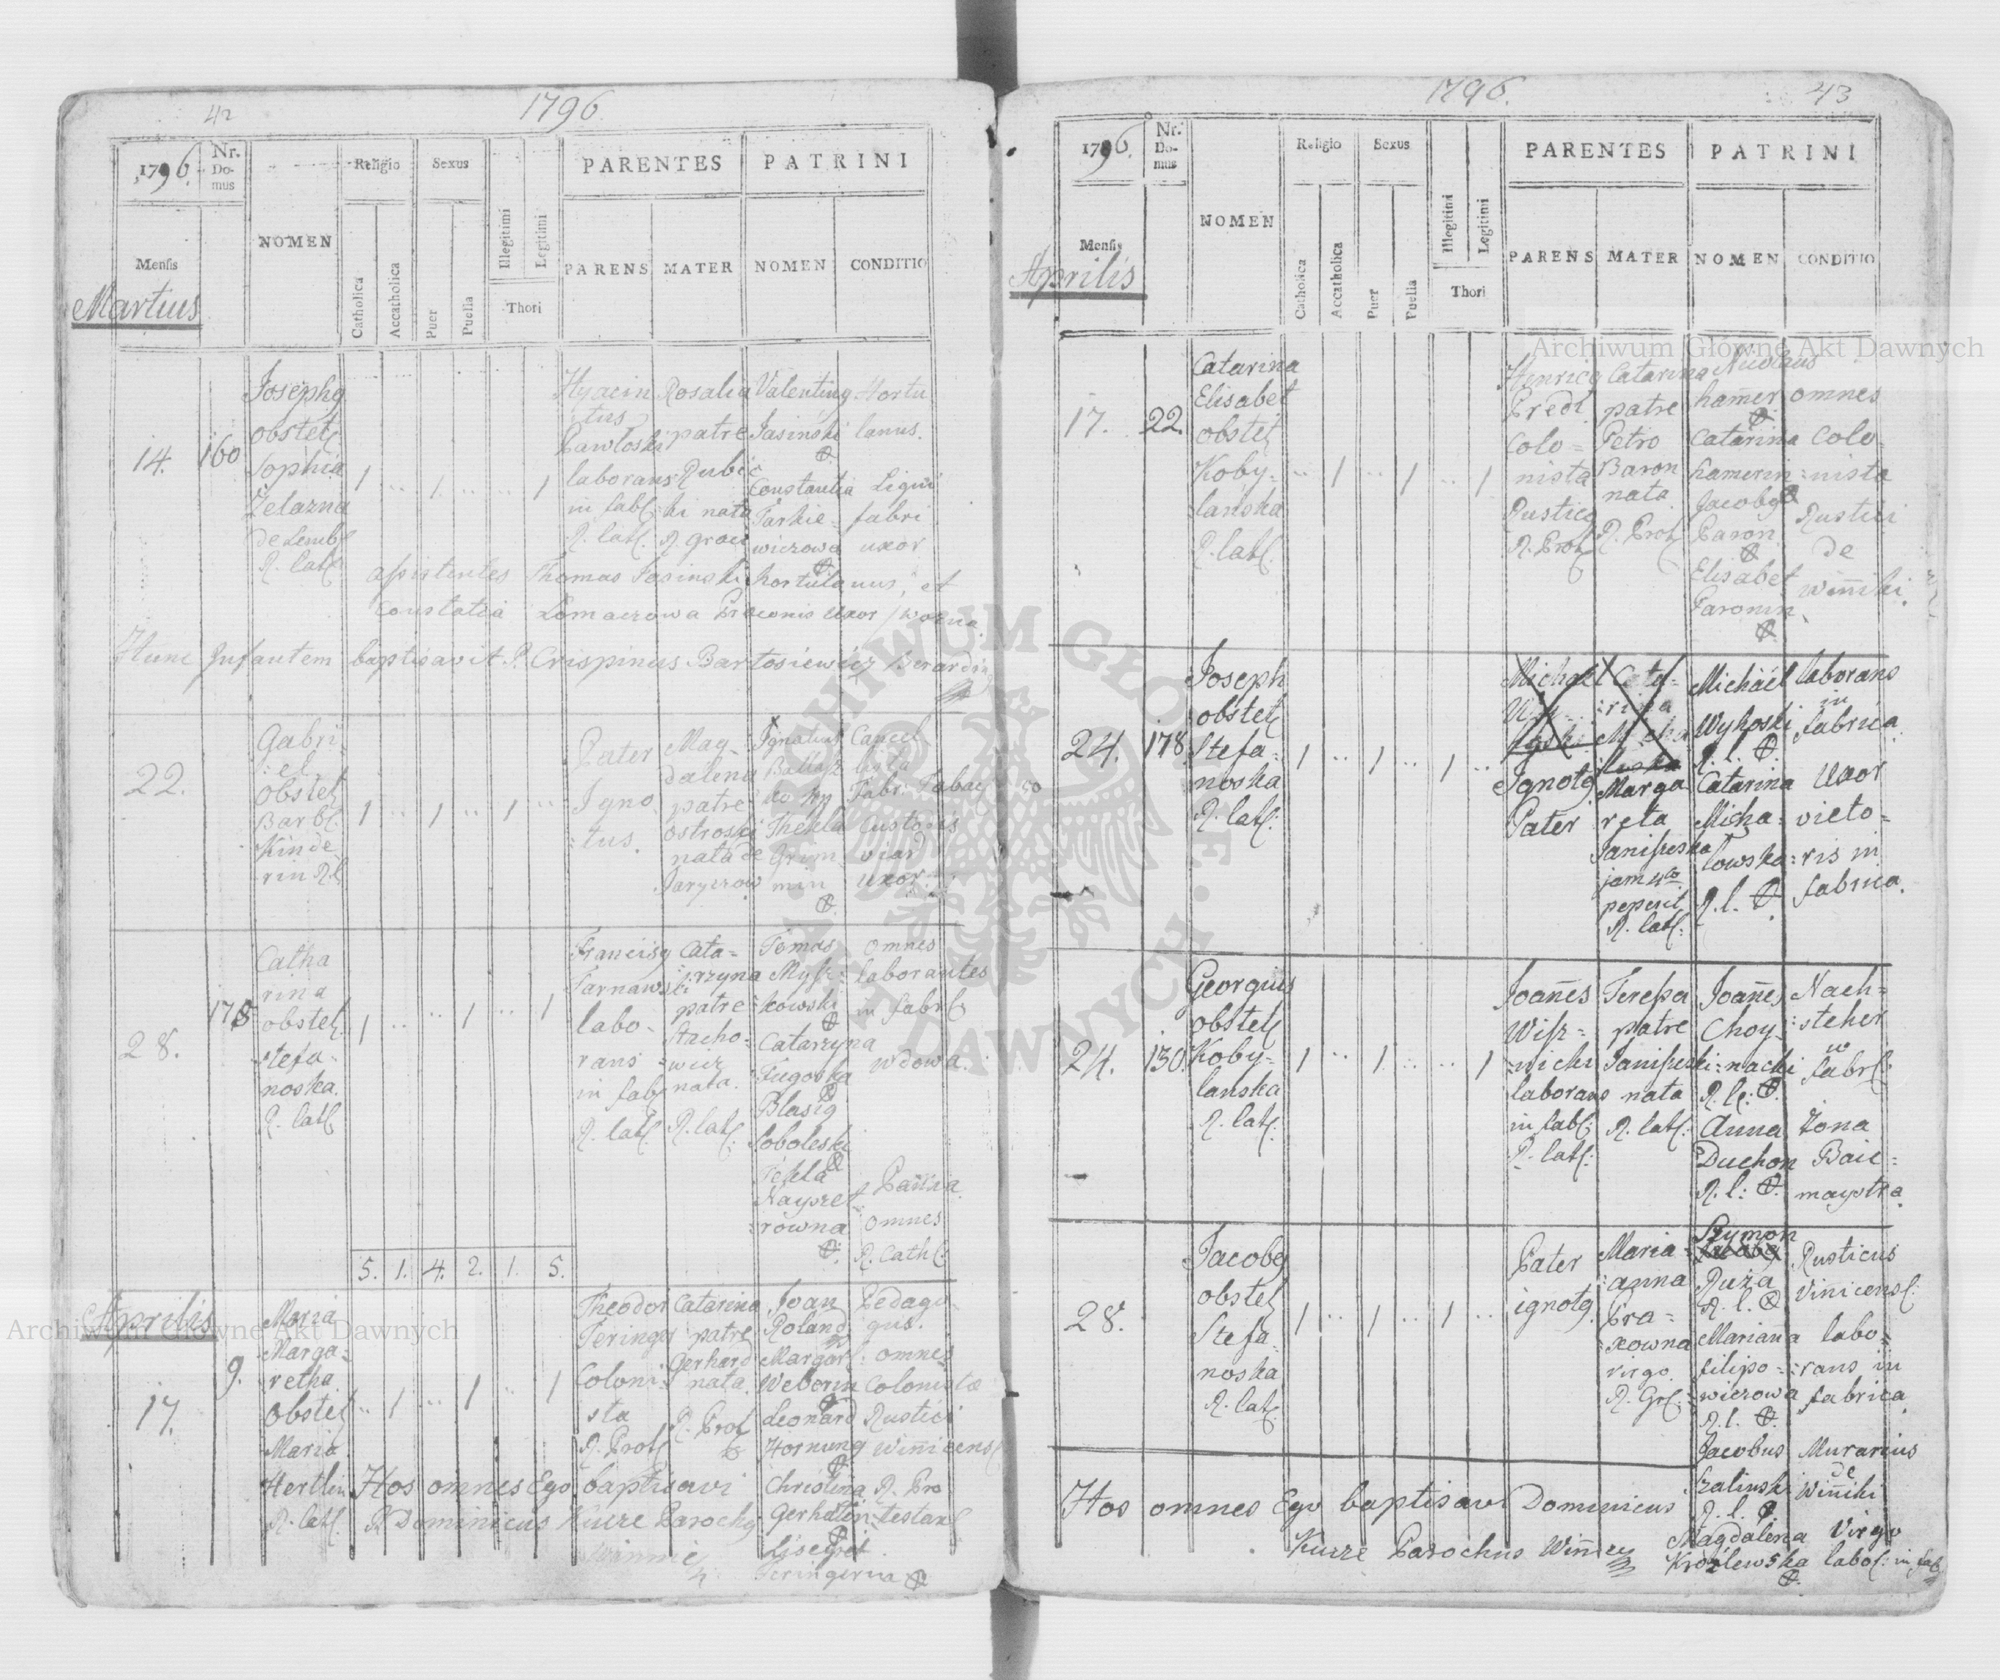 42
1796
1796.
Nr. Domus
NOMEN
Religio
Sexus
PARENTES
PATRINI
Mensis
Martius
Catholica
Accatholica
Puer
Puella
Illegitimi
Legitimi
Thori
PARENS
MATER
NOMEN
CONDITIO
14.
160
Josephg
obstet
Sophia
Żelazna
de Lemb
R. lat
1 .. 1. .. .. 1
Hyacin
tus
Pawloski
laborans
in fab
R. lat.
Rosalia
patre
Rubic
ki nata
R. graec
Valenting
Jasinski
Constantia
Tarkie-
wiczowa
Hortu
lanus.
Ligni
fabri
uxor
assistentes Thomas Jasinski hortulanus, et
Constatia Lomaczowa Praeconis uxor / wozna
Hunc Infantem baptisavit P. Crispinus Bartosiewicz Berardin
22.
Gabri-
:el
obstet
Barb.
Kinde
rin R.l.
1 .. 1 .. 1 ..
Pater
Igno
:tus.
Mag-
dalena
patre
ostroski
nata de
Jaryczow
Ignatius
Thekla
Grim
min
Fabr: Tabac
Custodis
uxor
28.
178
Catha
rina
obstet
stefa-
noska.
R. lat
1 .. .. 1 .. 1
Francisg
Tarnawski
labo-
rans
in fab
R. lat.
Cata-
:rzyna
patre
Stacho-
:wicz
nata.
R. lat.
Tomas
Mysz-
kowski
Catarzyna
Fugoska
Blasig
Soboleski
Tekla
Kayzer
:rowna
omnes
laborantes
in fabr
wdowa.
Panna.
omnes
R. Cath:
5. 1. 4. 2. 1. 5.
Aprilis
17.
9.
Maria
Marga-
retha
Obstet
Maria
Hertlin
R. lat.
.. 1 .. 1 .. 1
Theodor
Feringer
Coloni-
sta
R. Prot
Catarina
patre
Gerhard
nata.
R. Prot
Joan
Roland
Margar:
Weberin
Leonard
Hornung
Christina
Gerhatin
Lisegret
Feringerina
Pedago-
gus.
omnes
Colonistae
Rustici
Winnicens
R. Pro
testant
Hos omnes Ego baptisavi
P. Dominicus Kurze Parochg
Winnic
1796.
43
1796.
Nr. Domus
NOMEN
Religio
Sexus
PARENTES
PATRINI
Mensis
Aprilis
Catholica
Accatholica
Puer
Puella
Illegitimi
Legitimi
Thori
PARENS
MATER
NOMEN
CONDITIO
17.
22.
Catarina
Elisabet
obstet
Koby-
lanska
R. lat.
.. 1 .. 1 .. 1
Henricg
Predl
Colo-
nista
Rusticg
R. Prot
Catarina
patre
Petro
Baron
nata
R. Prot
Nicolaus
hamer
Catarina
Kamerin
Jacobg
Paron
Elisabet
Paronin
omnes
Colo-
:nista
Rustici
de
Winniki.
24.
178
Joseph
obstet
Stefa-
noska
R. lat.
1 .. 1 .. 1 ..
Michael
Ignotg
Pater
Cata-
:rina
Marga
reta
Janiszeska
jam 4to
peperit
R. lat.
Michael
Wykoski
R. l.
Catarina
Micha-
lowska
R. l.
laborans
in
fabrica
Uxor
vieto-
:ris in
fabrica.
24.
130.
Georgius
obstet
Koby-
lanska
R. lat.
1 .. 1 .. .. 1
Joanes
Wisz-
:nicki
laborans
in fab:
R. lat:
Teressa
patre
Janiszeski
nata
R. lat:
Joanes
Choy-
:nacki
R. l:
Anna
Duchon
R. l:
Nach-
:steher
w
fabr:
Żona
Baie-
maystra.
28.
Jacobg
obstet
Stefa-
noska
R. lat.
1 .. 1 .. 1 ..
Pater
ignotg
Maria-
:anna
Pra-
:xowna
virgo.
R. Gr:
Szymon
Jacobg
Ruża
R. l.
Mariana
filipo-
:wiczowa
R. l.
Jacobus
Szalinski
R. l.
Magdalena
Krolewska
Rusticus
Vinicens:
labo-
:rans in
fabrica
Murarius
de
Winniki
Virgo
labo: in fab
Hos omnes Ego baptisavi Dominicus
Kurze Parochus Winn
Archiwum Główne Akt Dawnych
Archiwum Główne Akt Dawnych
ARCHIWUM GŁÓWNE AKT DAWNYCH